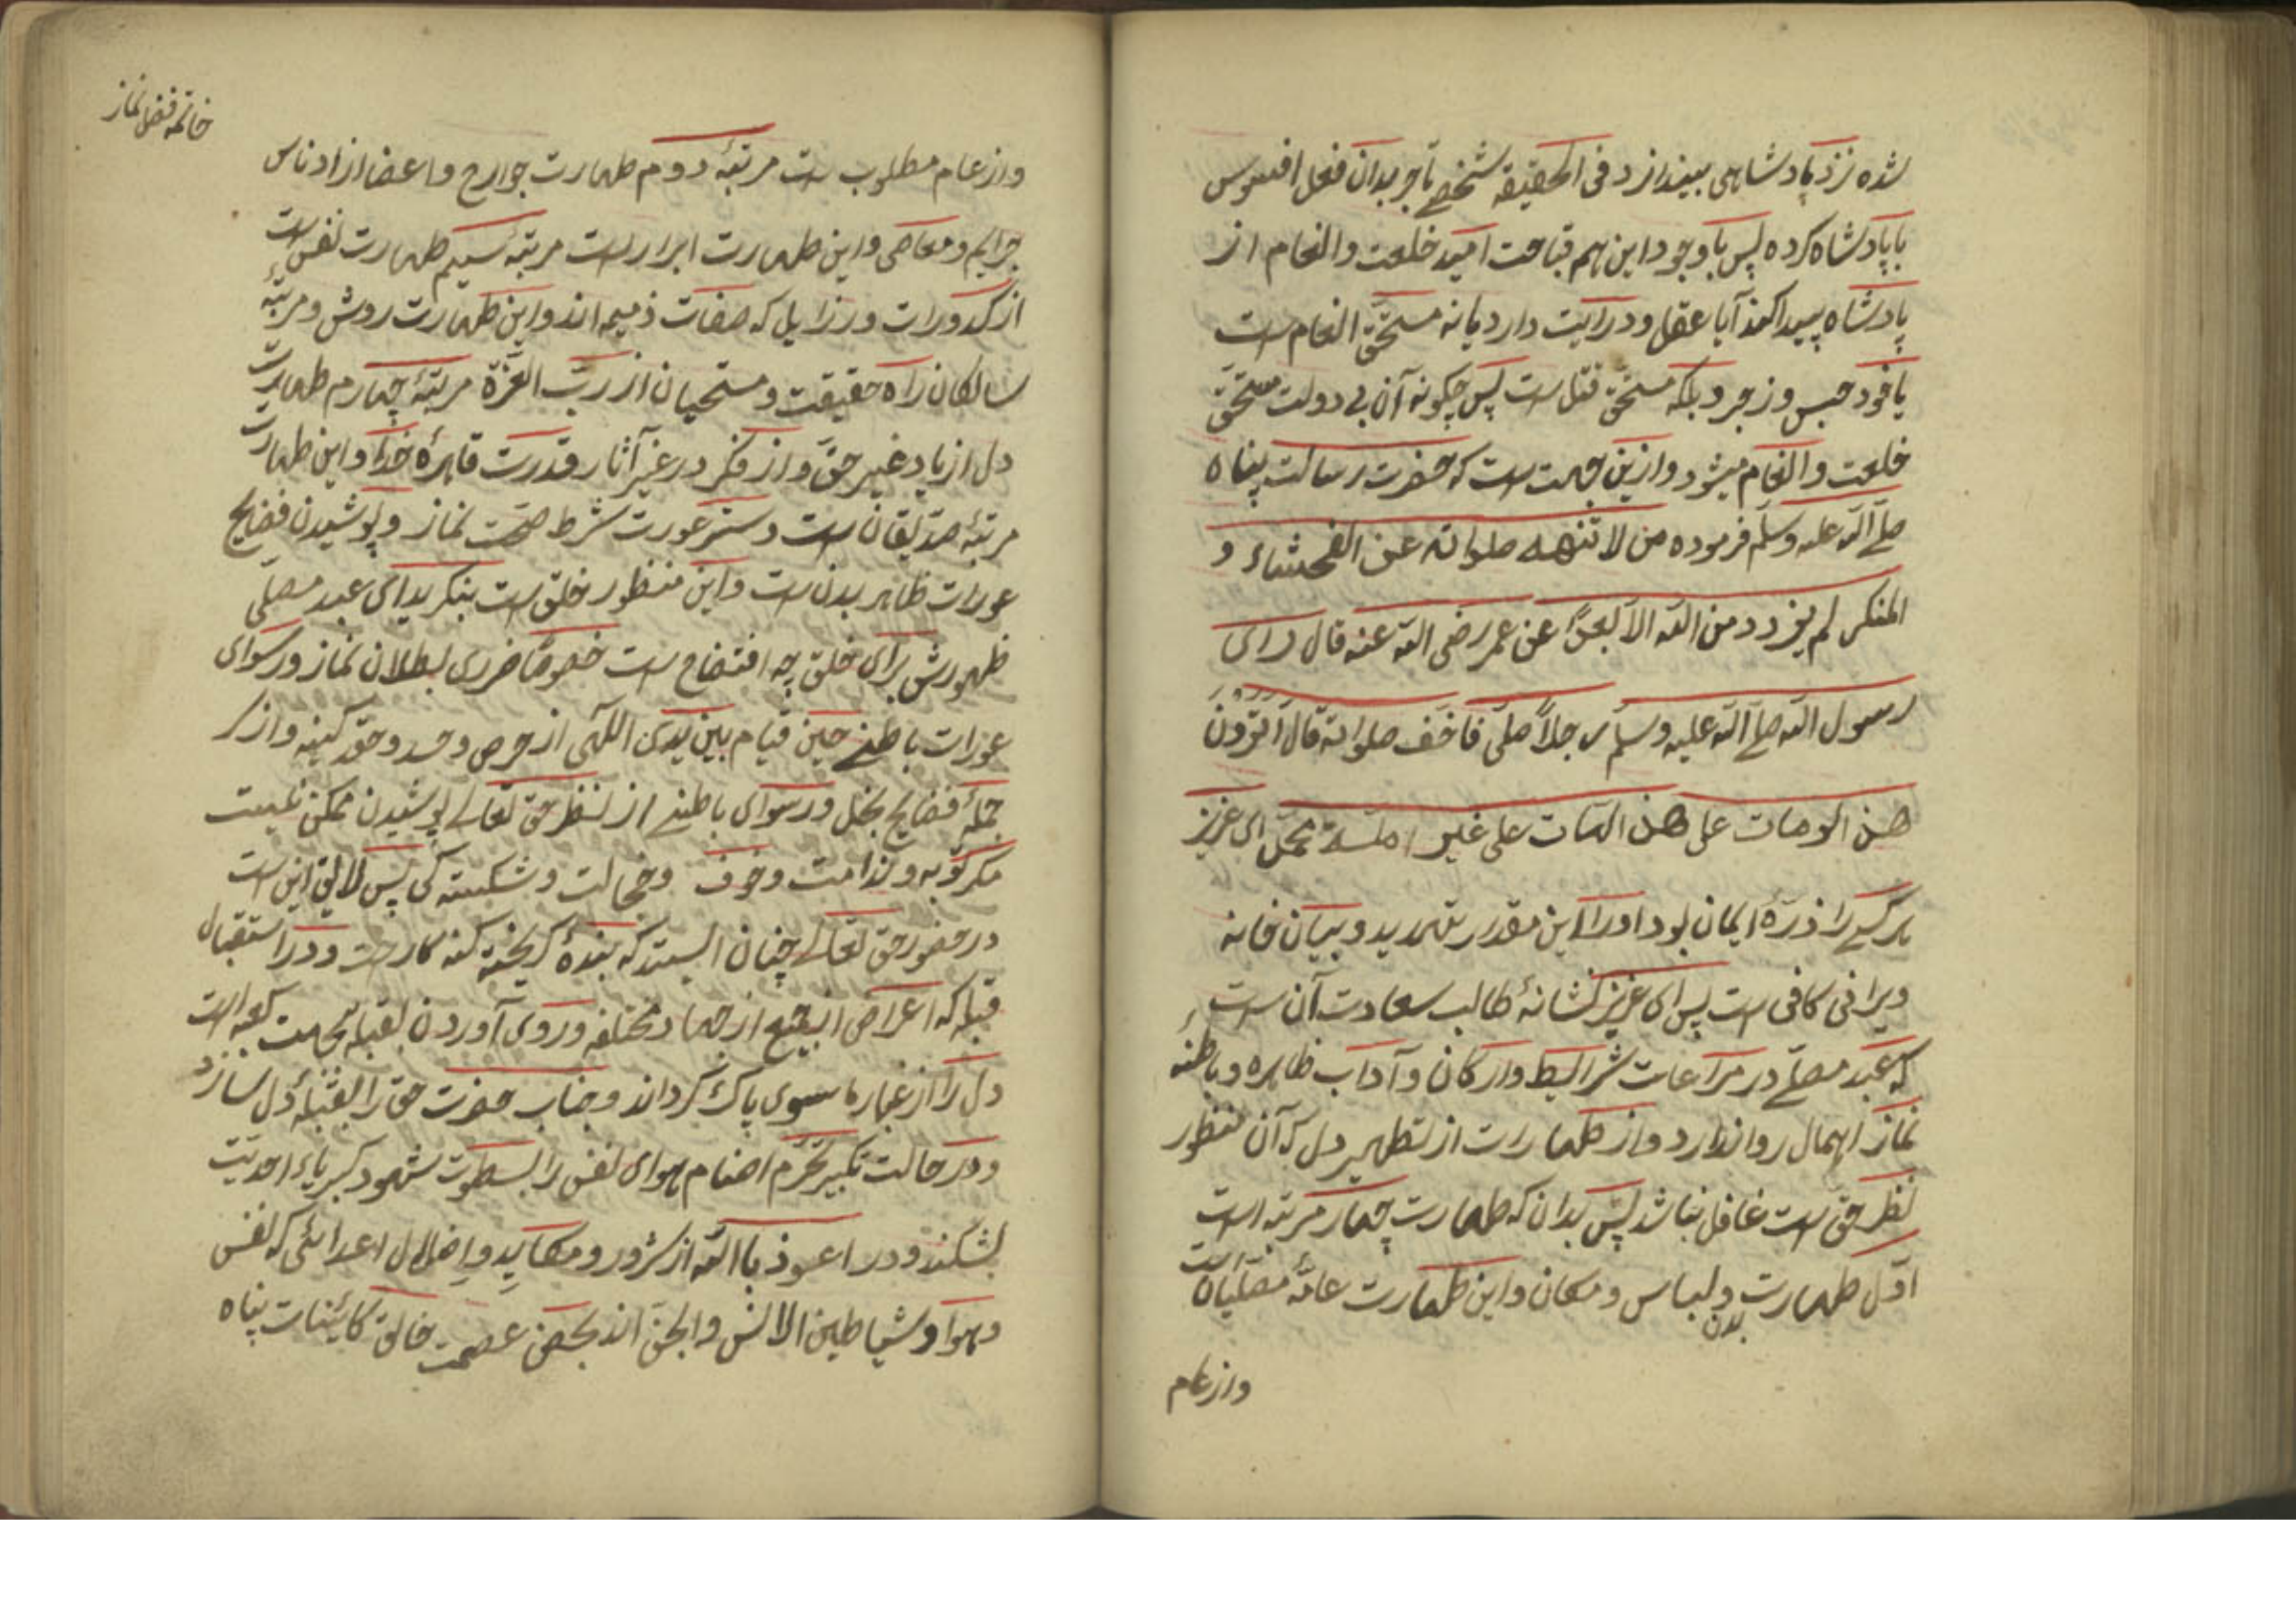 شده نزد پادشاهی بیندازد فی الحقیقه شخصے تأجر بدان فعل افسوس
با پادشاه کرده پس باوجود این ہم قباحت امید خلعت و انعام از
پادشاه پیدا کند آیا عقل و درایت دارد یا نه مستحق انعام است
یا خود حبس و زجر و بلکه مستحق قتل است پس چکونه آن بی دولت مستحق
خلعت و انعام میشود و ازین جهت است که حضرت رسالت پناه
صلے الله علیه وسلم فرموده من لا تنهه صلواته عن الفحشاء و
المنکر لم یزدد من الله الا بعدًا عن عمر رضی الله عنه قال رای
رسول الله صلے الله علیه وسلم رجلاً صلی فاخف صلواته قال اترون
هذا لومات علی هذا لمات علی غیر ملة محمد ای عزیز
ہر کسے را ذرۀ ایمان بود اورا این مقدار تهدید و بیان خانه
ویرانی کافی است پس ای عزیز نشانۀ طالب سعادت آن است
که عبد مصلے در مراعات شرایط و ارکان و آداب ظاہره و باطنۀ
نماز اہمال روا ندارد و از طهارات از تطهیر دل که آن منظور
نظر حق است غافل نباشد پس بدان که طهارت چهار مرتبه است
اوّل طهارت بدن و لباس و مکان و این طهارت عامّۀ مصلّیان است
وازعام
خاتمه فضل نماز
و از عام مطلوب است مرتبۀ دوم طهارت جوارح و اعضا از ادناس
جرایم و معاصی و این طهارت ابرار است مرتبۀ سیم طهارت نفس است
از کدورات و رزایل که صفات ذمیمه اند و این طهارت روش و مرتبۀ
سالکان راه حقیقت و مستحیان از ربّ العزّة مرتبۀ چهارم طهارت
دل از یاد غیر حقّ و از فکر در غیر آثار قدرت قاہرۀ خدا و این طهارت
مرتبۀ صدّیقان است و ستر عورت شرط صحّت نماز و پوشیدن فضایح
عورات ظاہر بدن است و این منظور خلق است بنکرید ای عبد مصلّی
ظهورش برای خلق چه افتضاح است خصوصًا ضرری بطلان نماز و رسوای
عورات باطنے حین قیام بین یدی اللهی از حرص و حسد و حقد کینه و از کر
جملۀ فضایح بخل و رسوای باطنے از نظر حق تعالے پوشیدن ممکن نیست
مکر توبه و ندامت و خوف و خجالت و شکسته کی پس لایق این است
در حضور حق تعالے چنان ایستد که بندۀ کریخته کنه کار است و در استقبال
قبله که اعراض از جهات مختلفه و روی آوردن بقبله بجهت کعبه است
دل را از غبار ما سوی پاک کرداند و جناب حضرت حق را قبلۀ دل سازد
و در حالت تکبیر تحرّم اصنام ہوای نفس را بسطوت شهود کبریاء احدیّت
بشکند و در اعوذ باالله از شرور و مکاید و اضلال اعدائی که نفس
و ہوا و شیاطین الانس و الجنّ اند بحصن عصمت خالق کائینات پناه